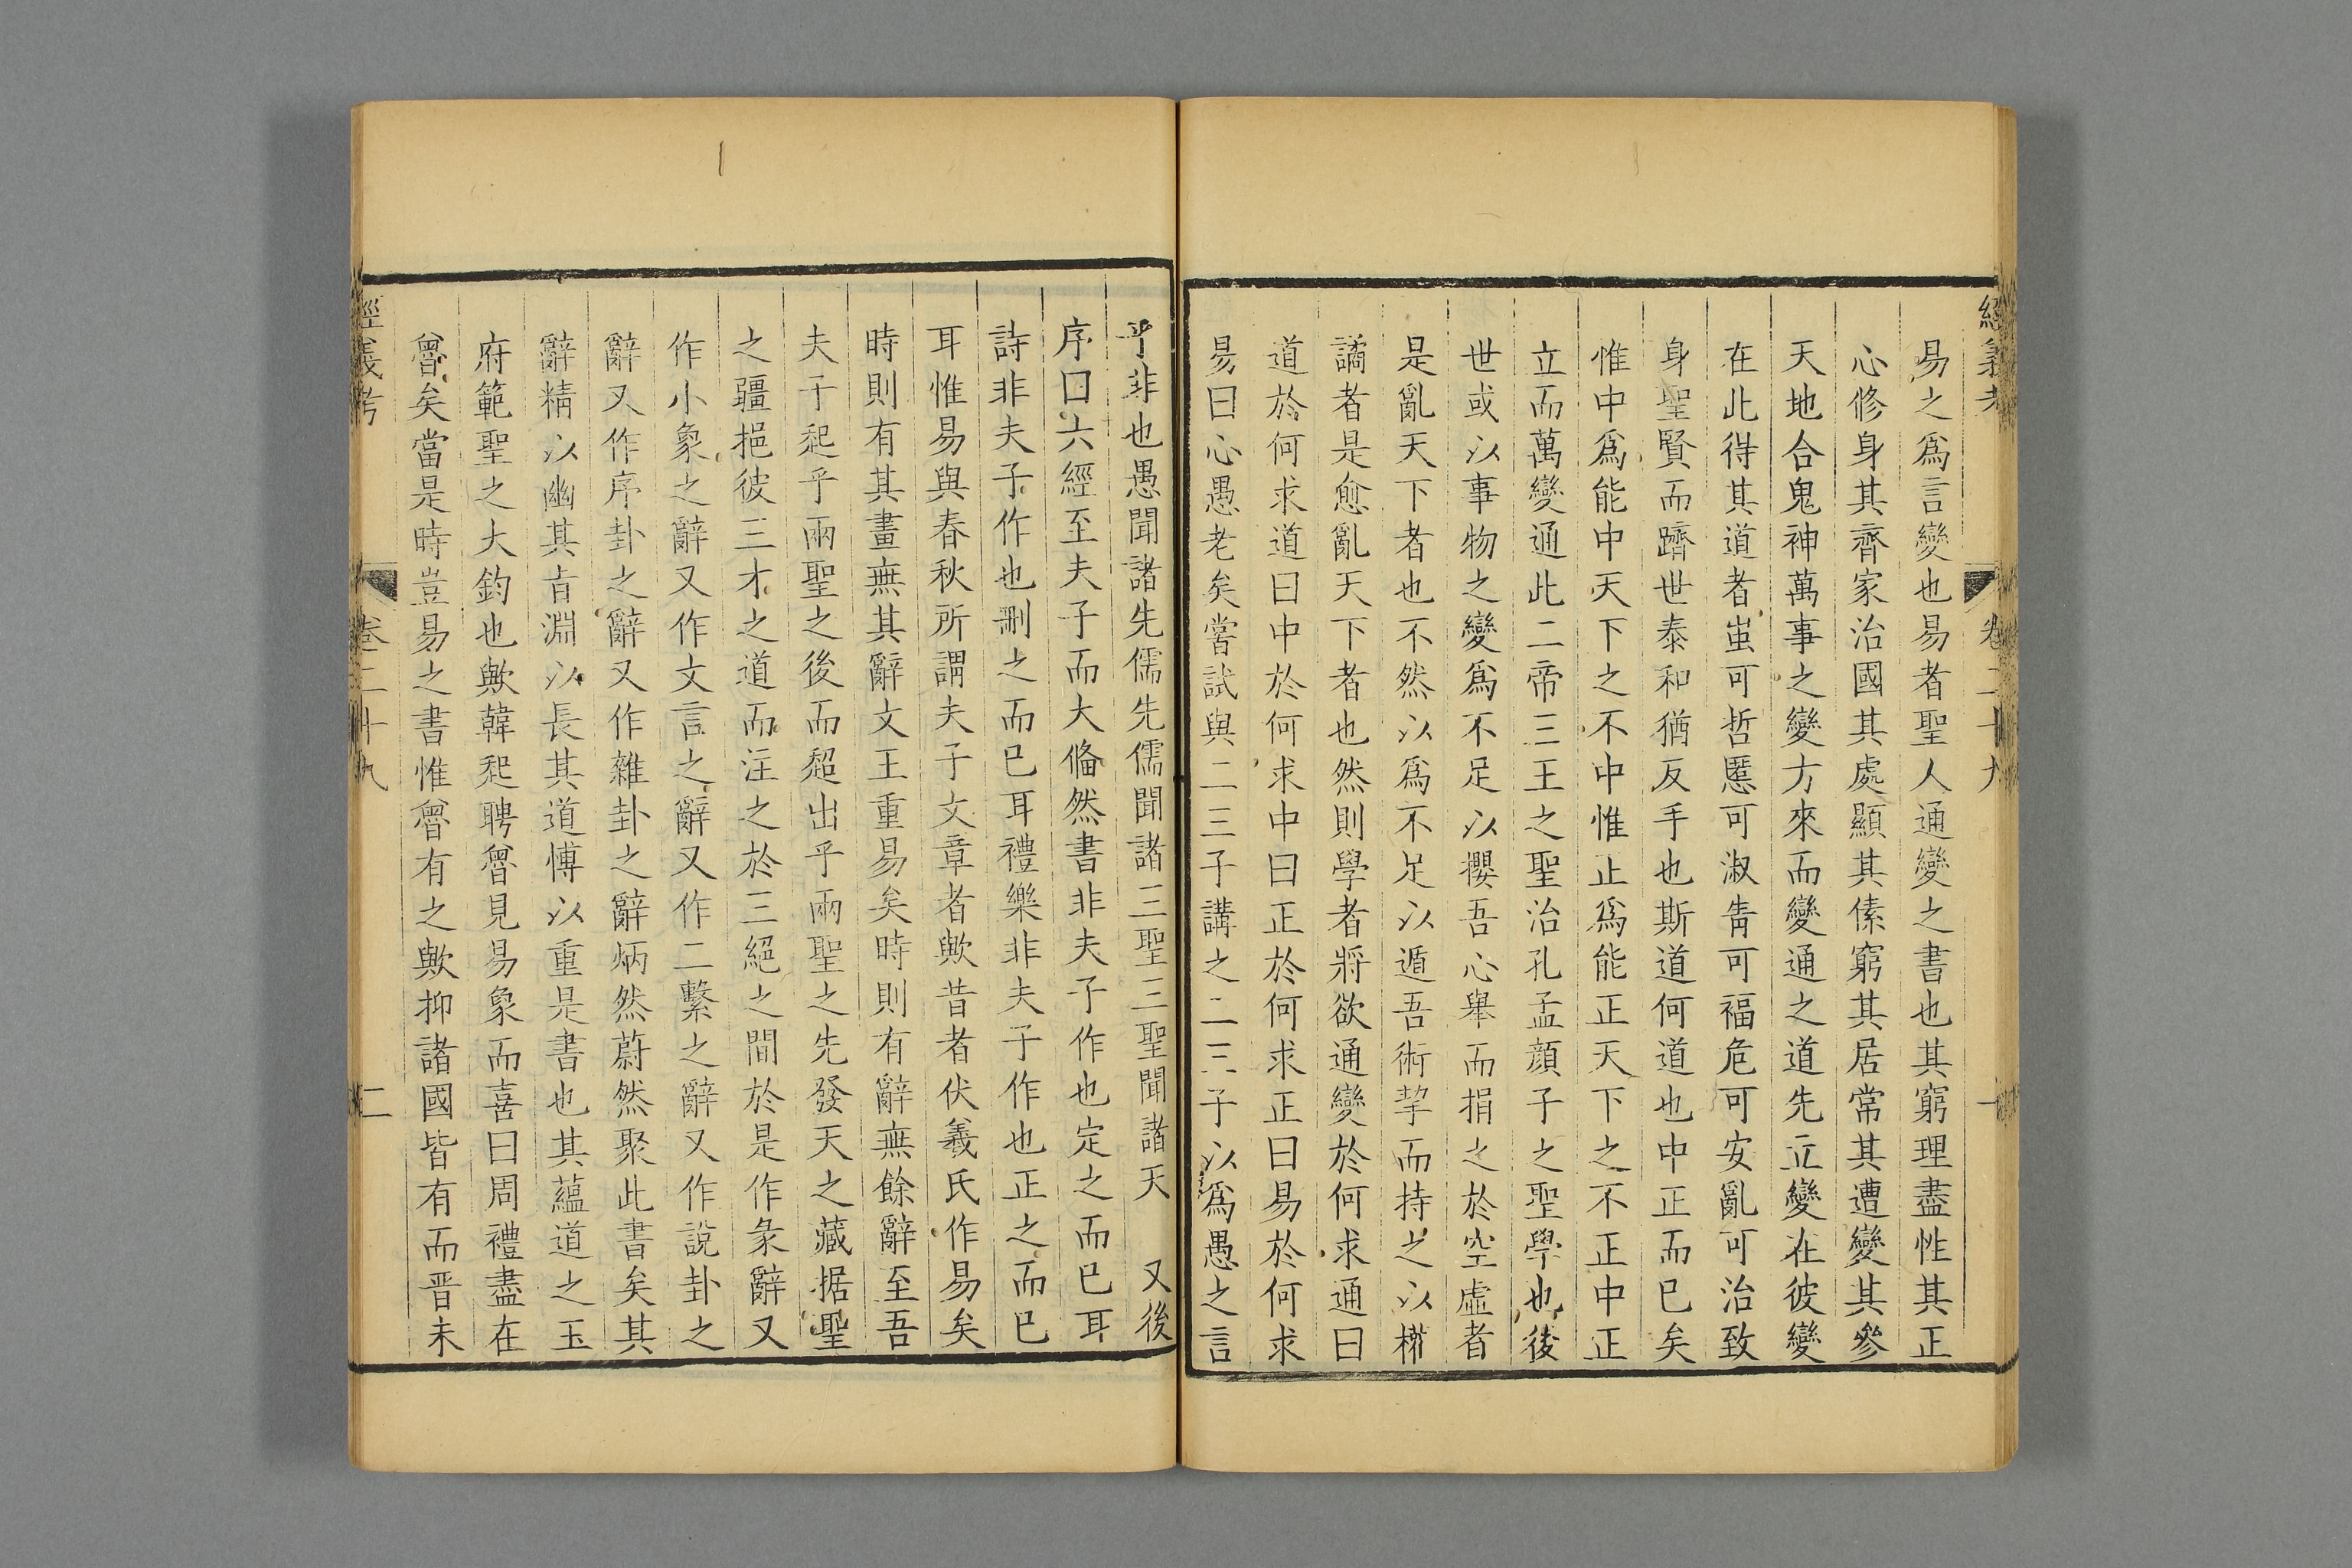 經義考
卷二十九
一
易之爲言變也易者聖人通變之書也其窮理盡性其正
心修身其齊家治國其處顯其傃窮其居常其遭變其參
天地合鬼神萬事之變方來而變通之道先立變在彼變
在此得其道者蚩可哲慝可淑眚可福危可安亂可治致
身聖賢而躋世泰和猶反手也斯道何道也中正而已矣
惟中爲能中天下之不中惟正爲能正天下之不正中正
立而萬變通此二帝三王之聖治孔孟顔子之聖學也後
世或以事物之變爲不足以攖吾心舉而捐之於空虛者
是亂天下者也不然以爲不足以遁吾術挈而持之以權
譎者是愈亂天下者也然則學者將欲通變於何求通曰
道於何求道曰中於何求中曰正於何求正曰易於何求
易曰心愚老矣嘗試與二三子講之二三子以爲愚之言
乎非也愚聞諸先儒先儒聞諸三聖三聖聞諸天　又後
序曰六經至夫子而大僃然書非夫子作也定之而已耳
詩非夫子作也刪之而已耳禮樂非夫子作也正之而已
耳惟易與春秋所謂夫子文章者歟昔者伏羲氏作易矣
時則有其畫無其辭文王重易矣時則有辭無餘辭至吾
夫子起乎兩聖之後而超出乎兩聖之先發天之藏据聖
之疆挹彼三才之道而注之於三絕之間於是作彖辭又
作小象之辭又作文言之辭又作二繫之辭又作說卦之
辭又作序卦之辭又作雜卦之辭炳然蔚然聚此書矣其
辭精以幽其旨淵以長其道博以重是書也其蘊道之玉
府範聖之大鈞也歟韓起聘魯見易象而喜曰周禮盡在
魯矣當是時豈易之書惟魯有之歟抑諸國皆有而晋未
經義考
卷二十九
二